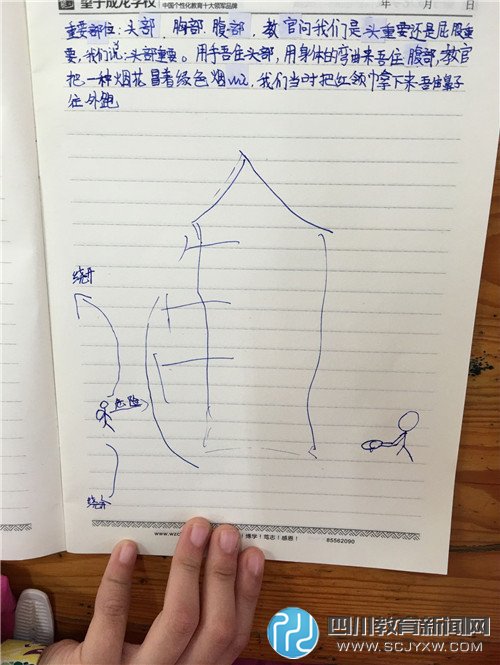 望子成龙学校 中国个性化教育十大领军品牌 年 月 日
重要部位:头部,胸部,腹部,教官问我们是头重要还是屁股重
要,我们说:头部重要。用手吾住头部,用身体的弯曲来吾住腹部,教官
把一种烟花冒着绿色烟,我们当时把红领巾拿下来吾住鼻子
往外跑
绕开
危险
绕开
博学!笃志!感恩! 85562090
四川教育新闻网
WWW.SCJYXW.COM